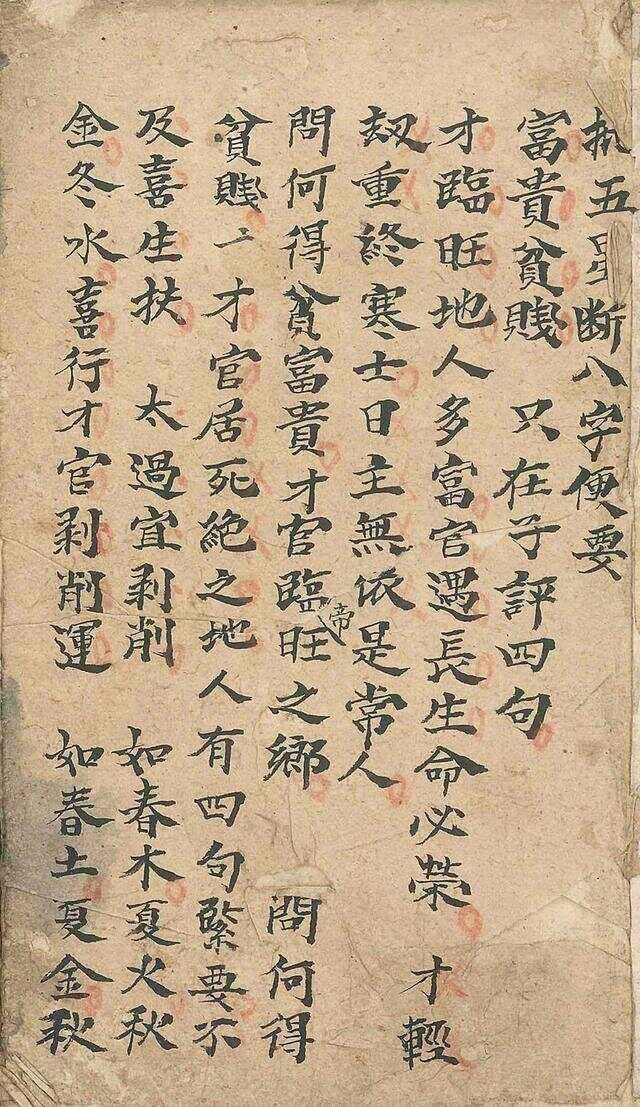 批五星断八字便要
富貴貧賤 只在子評四句
才臨旺地人多富官遇長生命必榮 才輕
刼重終寒士日主無依是常人
問何得貧富貴才官臨帝旺之鄉 問何得
貧賤亠才官居死絶之地人有四句緊要不
及喜生扶 太過宜剥削 如春木夏火秋
金冬水喜行才官剥削運 如春土夏金秋